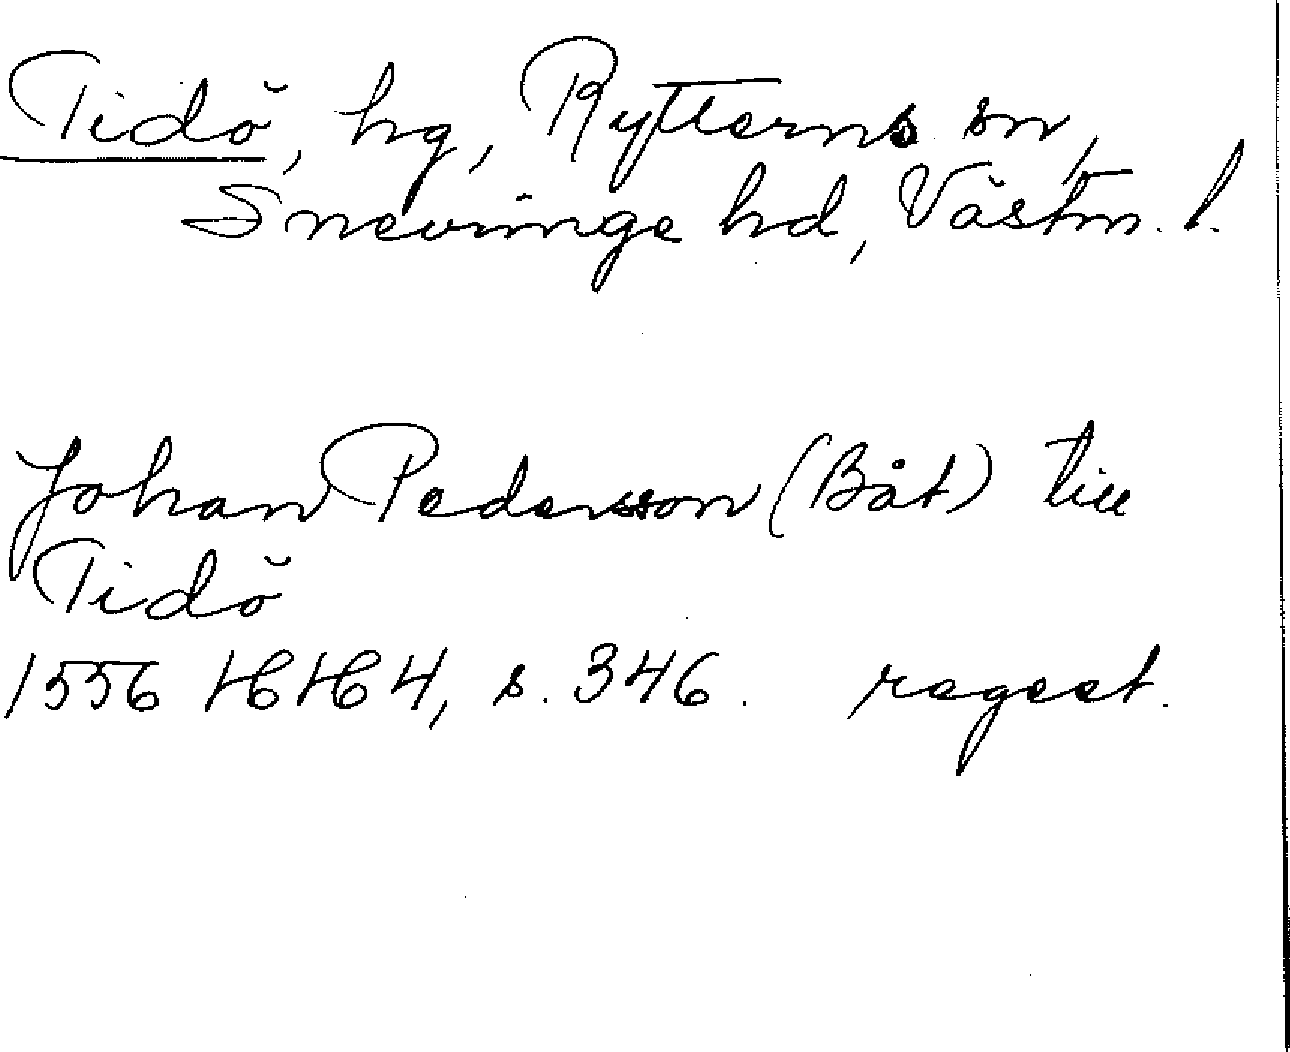 Tidö, hg, Rytterns sn,
Snevringe hd, Västm. l.
Johan Pedersson (Båt) till
Tidö
1556 HH 4, s. 346. regest.